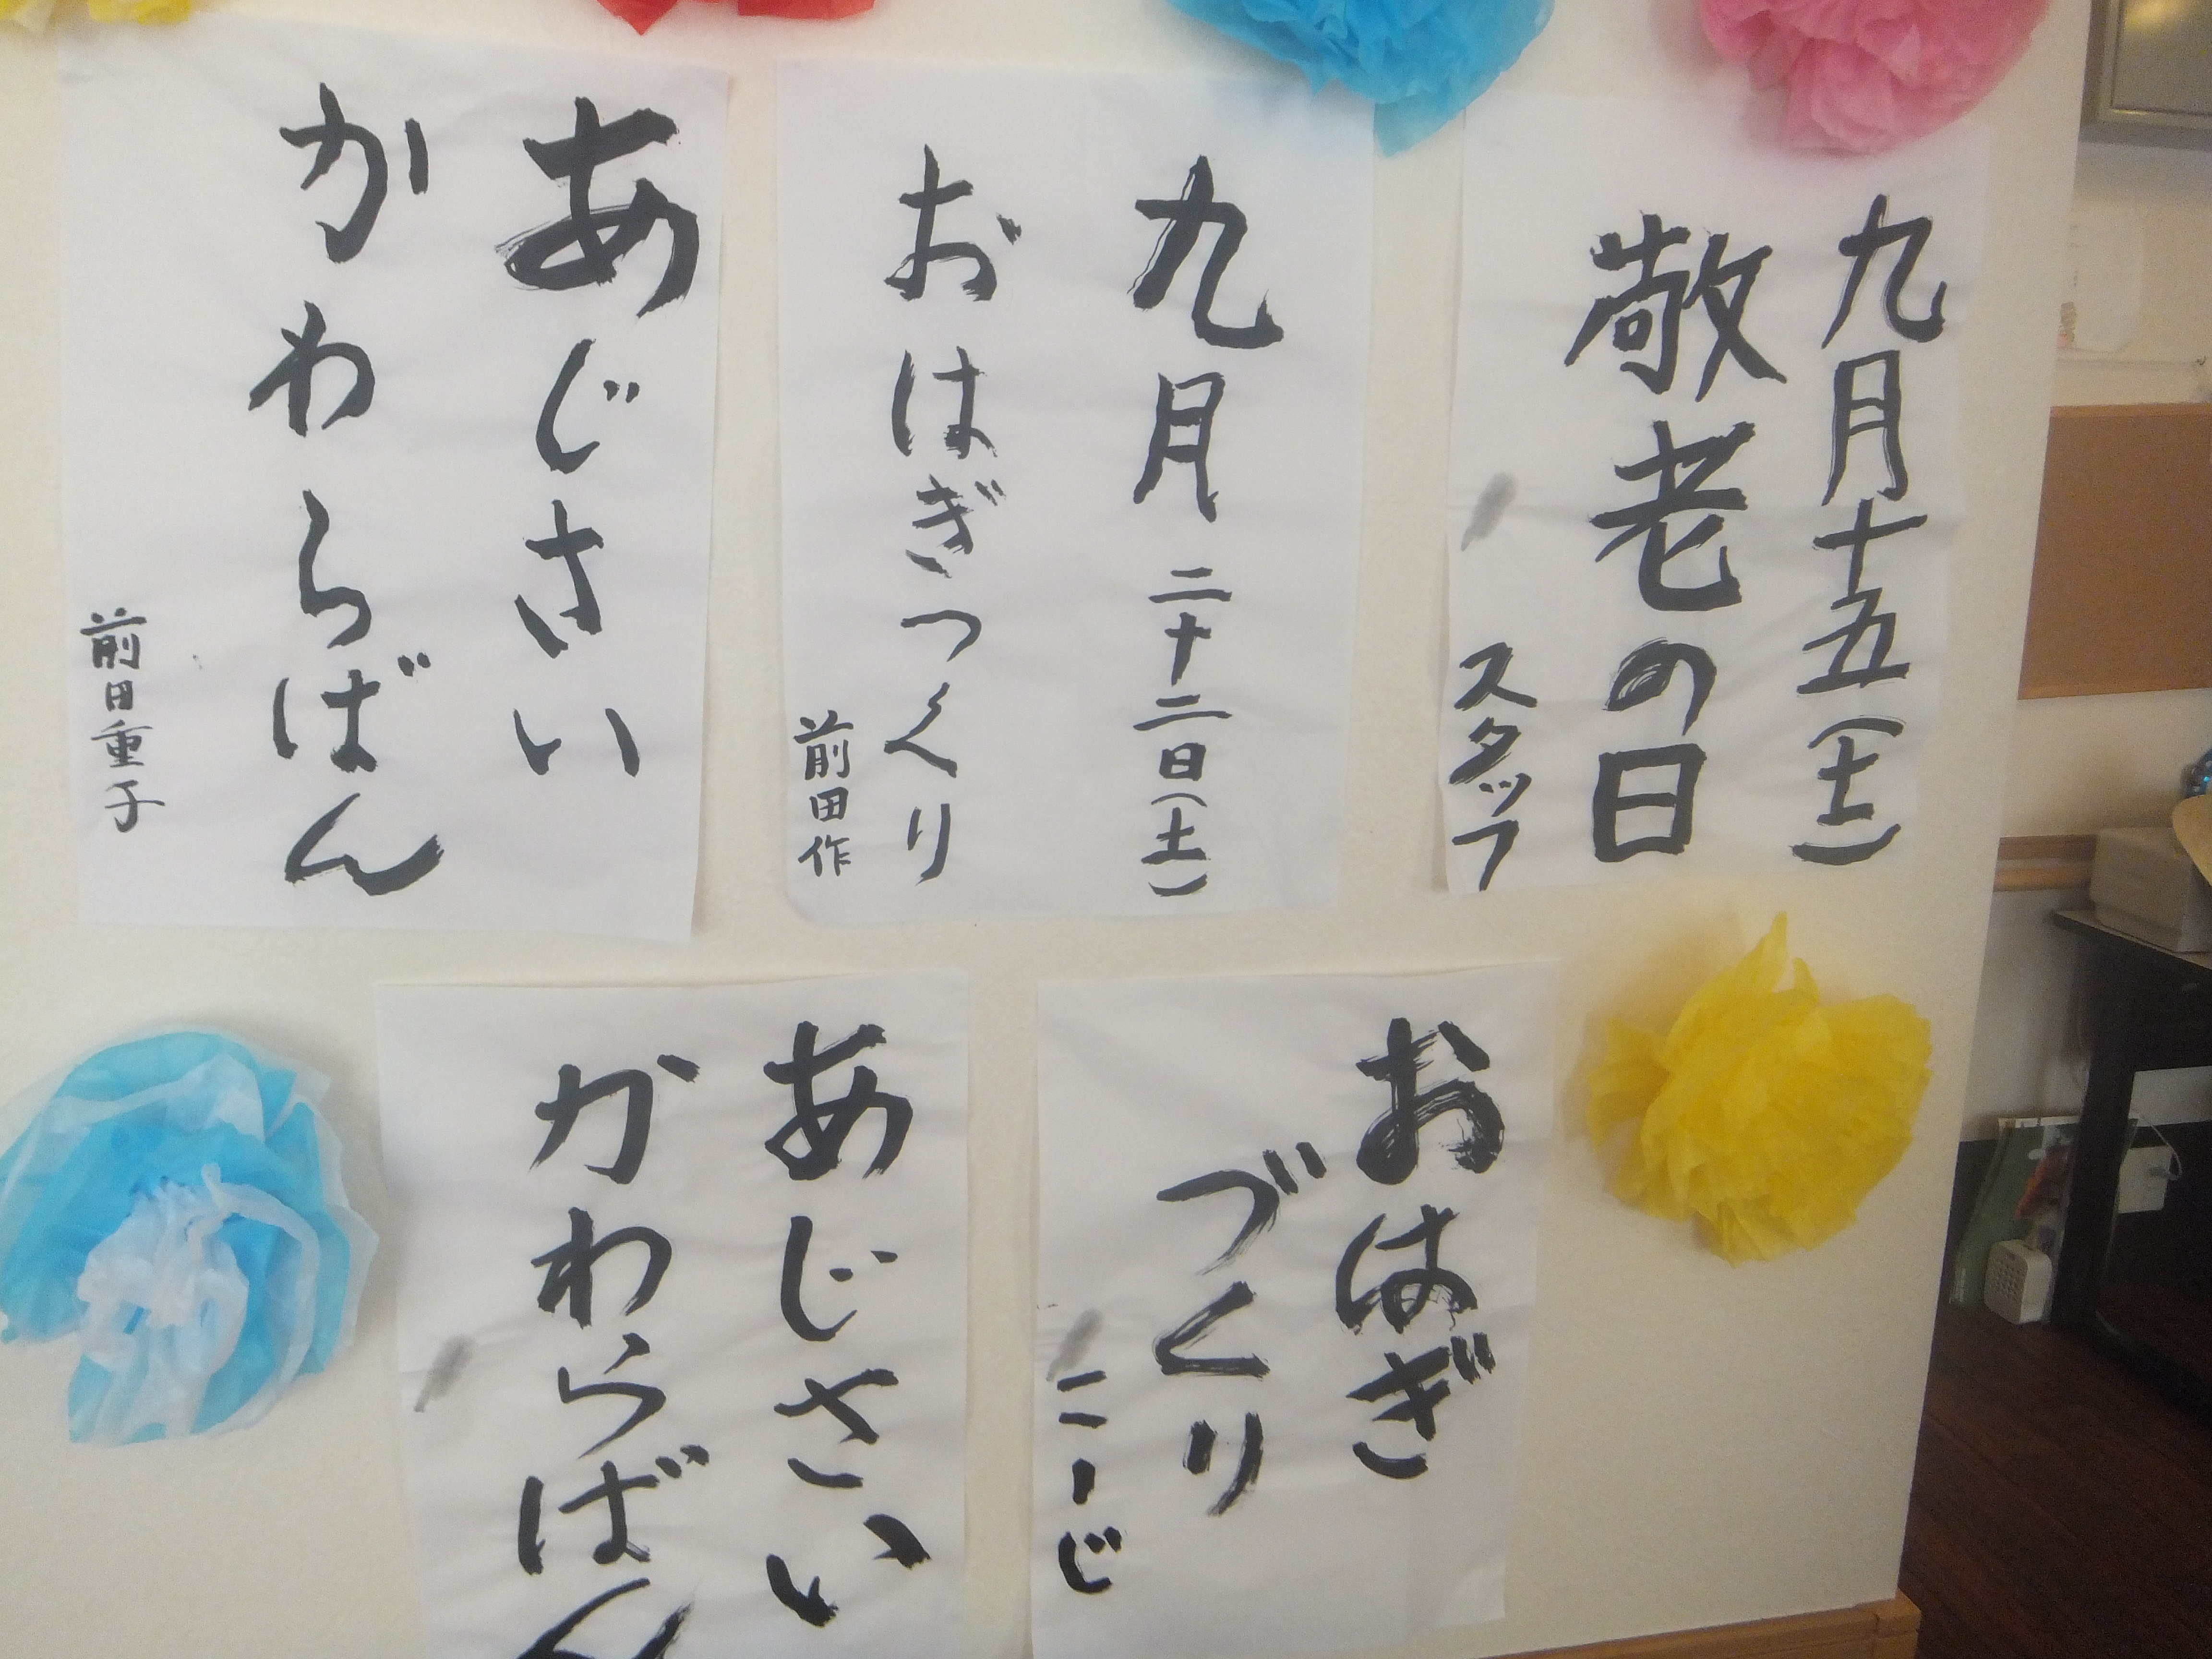 九月十五(土)
敬老の日
スタッフ
九月二十二日(土)
おはぎつくり
前田作
あじさい
かわらばん
前田重子
おはぎ
づくり
こーじ
あじさい
かわらばん